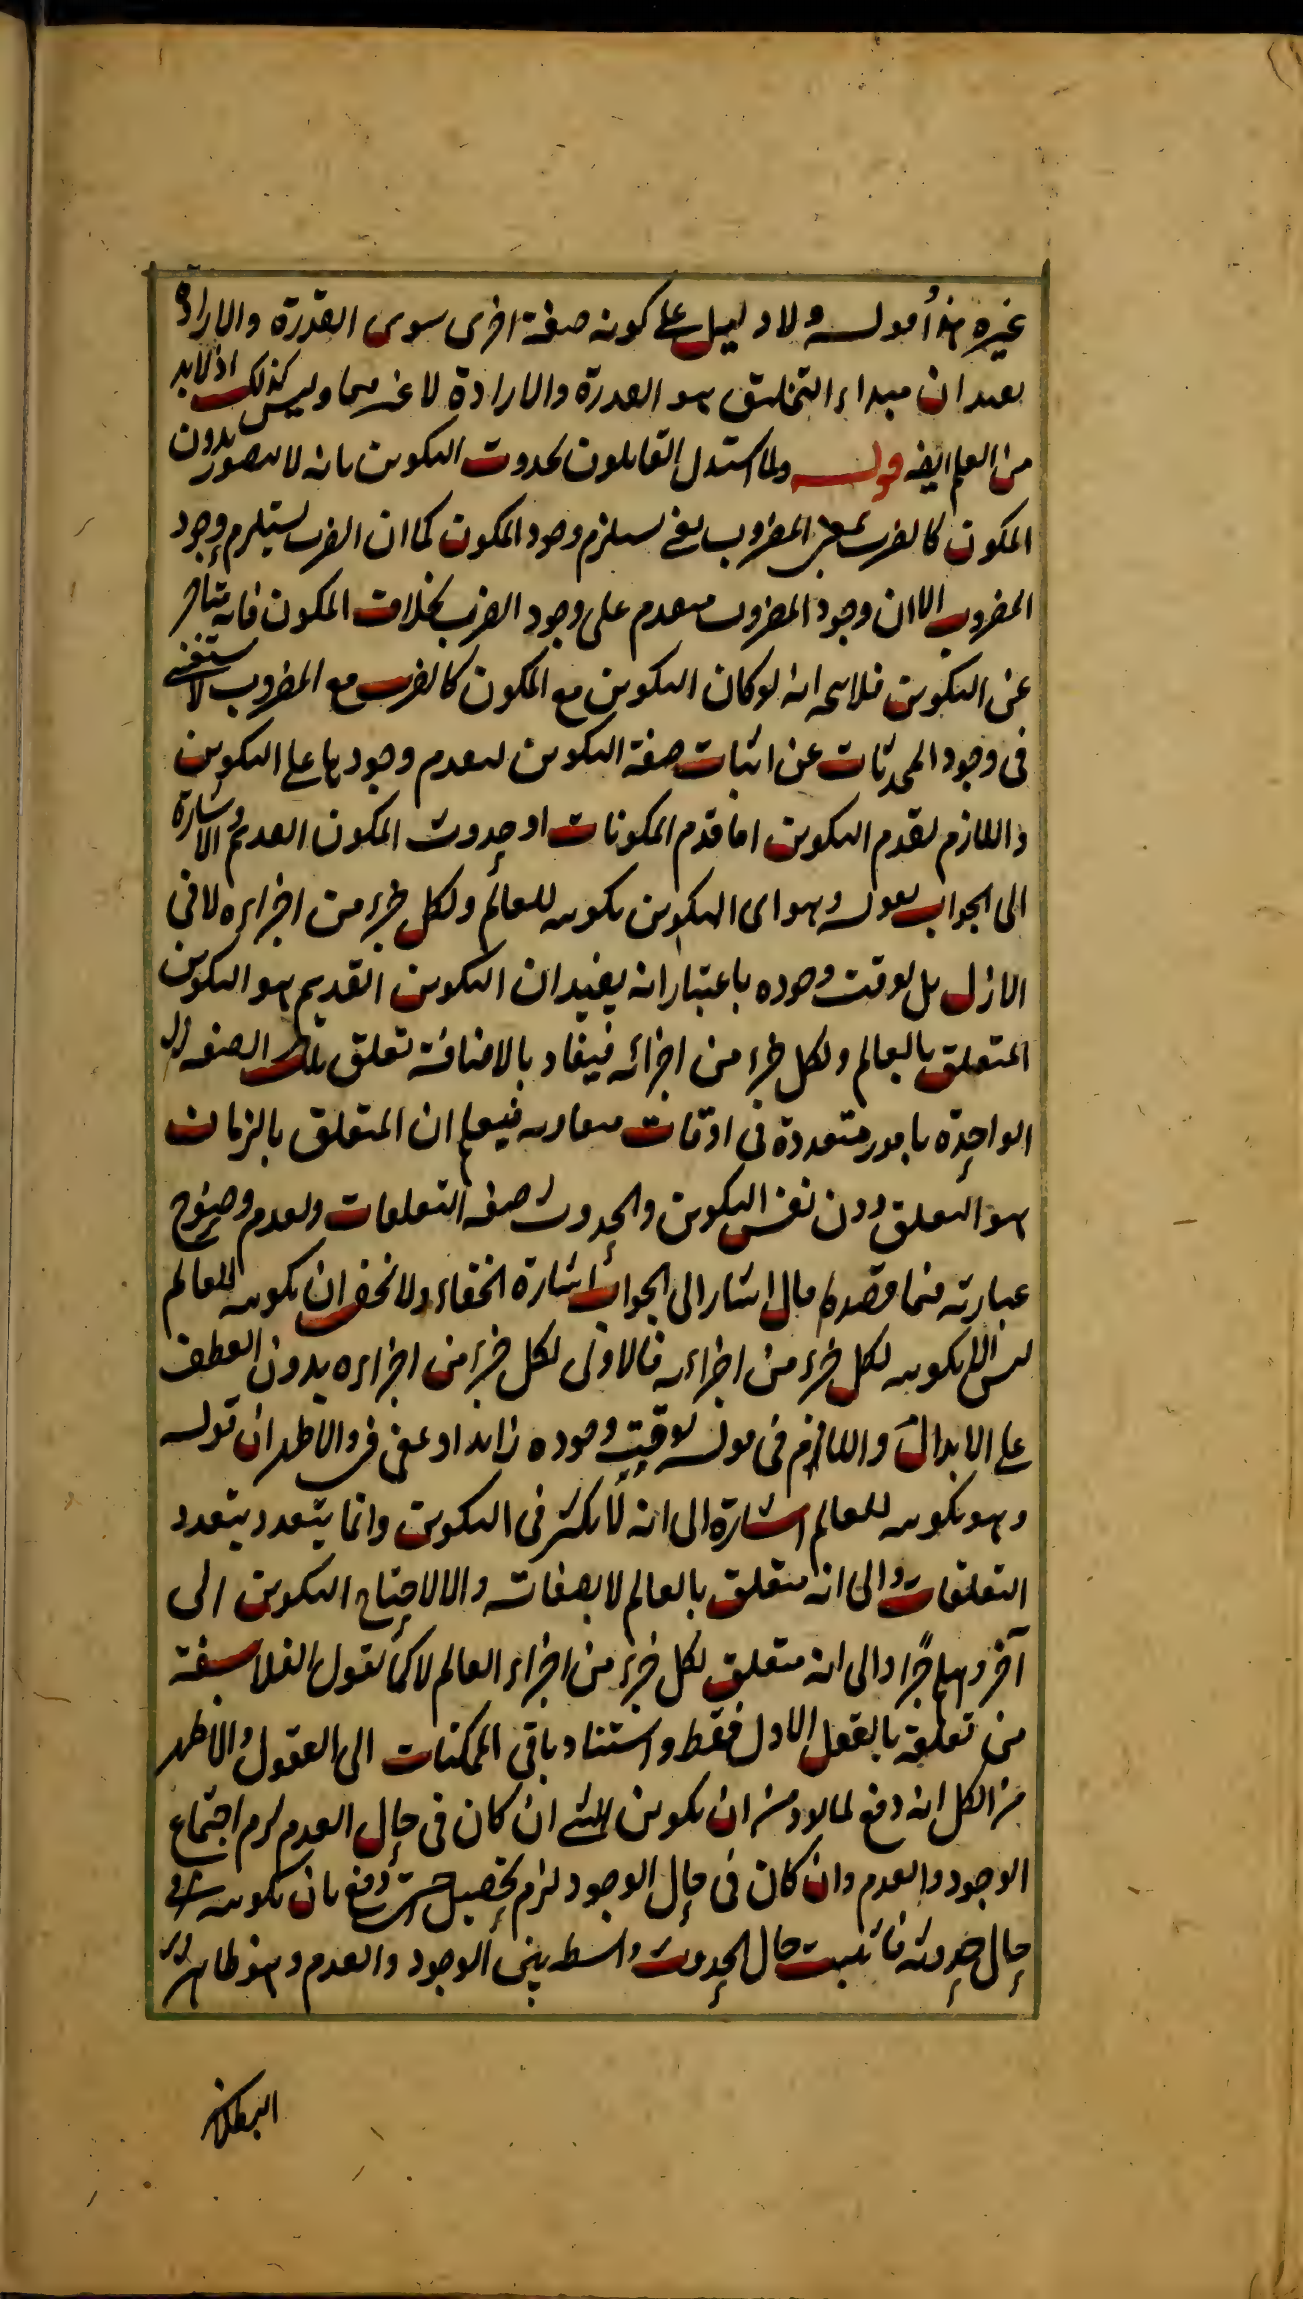 غيره هذا وقوله ولا دليل على كونه صفة اخرى سوى القدرة والارادة
يفيد ان مبداء التخليق هو القدرة والارادة لا غيرهما وليس كذلك اذ لا بد
من العلم ايضه قوله ولما استدل القايلون بحدوث التكوين بانه لا يتصور بدون
المكون كالضرب بدون المضروب يعني يستلزم وجود المكون كما ان الضرب يستلزم وجود
المضروب الا ان وجود المضروب متقدم على وجود الضرب بخلاف المكون فانه يتاخر
عن التكوين فلا يتجه انه لو كان التكوين مع المكون كالضرب مع المضروب لاستغنى
في وجود المحدثات عن اثبات صفة التكوين لتقدم وجودها على التكوين
واللازم لقدم التكوين اما قدم المكونات او حدوث المكون القديم والاشارة
الى الجواب بقوله وهو اى التكوين تكوينه للعالم ولكل جزء من اجزاءه لا في
الازل بل لوقت وجوده باعتبار انه يفيد ان التكوين القديم هو التكوين
المتعلق بالعالم ولكل جزء من اجزائه فيفاد بالاضافة تعلق تلك الصفة
الواحدة بامور متعددة في اوقات متعاقبة فيعلم ان المتعلق بالزمان
هو التعلق دون نفس التكوين والحدوث صفة التعلقات ولعدم وضوح
عبارته فيما قصده قال اشار الى الجواب اشارة الخفاء ولا يخفى ان تكوينه للعالم
ليس الا تكوينه لكل جزء من اجزائه فالاولى لكل جزء من اجزاءه بدون العطف
على الابدال واللام في قوله لوقت وجوده زائد او بمعنى في والاظهر ان قوله
وهو تكوينه للعالم اشارة الى انه لا تكثر في التكوين وانما يتعدد بتعدد
التعلقات والى انه متعلق بالعالم لا بصفاته والا لاحتاج التكوين الى
آخر وهلم جرا والى انه متعلق لكل جزء من اجزاء العالم لا كما تقول الفلاسفة
من تعلقه بالعقل الاول فقط واستناد باقي الممكنات الى العقول والاظهر
من الكل انه دفع لما اورد من ان تكوين الشئ ان كان في حال العدم لزم اجتماع
الوجود والعدم وان كان في حال الوجود لزم تحصيل الحاصل ودفع بان تكوينه في
حال حدوثه فاثبت حال الحدوث واسطه بين الوجود والعدم وهو ظاهر
البطلان